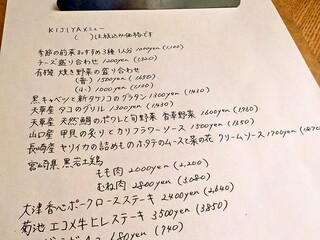 KIJIYAメニュー
( )は税込み価格です
季節の前菜おすすめ3種 1人分 1000yen (1,100)
チーズ盛り合わせ 1200yen (1,320)
有機 焼き野菜の盛り合わせ
(普) 1500yen (1,650)
(小) 1000yen (1,100)
黒キャベツと新タケノコのグラタン 1300yen (1,430)
天草産 タコのグリル 1300yen (1,430)
天草産 天然鯛のポワレと旬野菜 香草野菜 1600yen (1,760)
山口産 甲貝の炙りとカリフラワーソース 1500yen (1,650)
長崎産 ヤリイカの詰めものホタテのムースと菜の花 クリームソース 1700yen (1,870)
宮崎県 黒岩土鶏
もも肉 2000yen (2,200)
むね肉 2800yen (3,080)
大津香心ポークロースステーキ 2400yen (2,640)
菊池 エコメ牛ヒレステーキ 3500yen (3,850)
680yen (740)